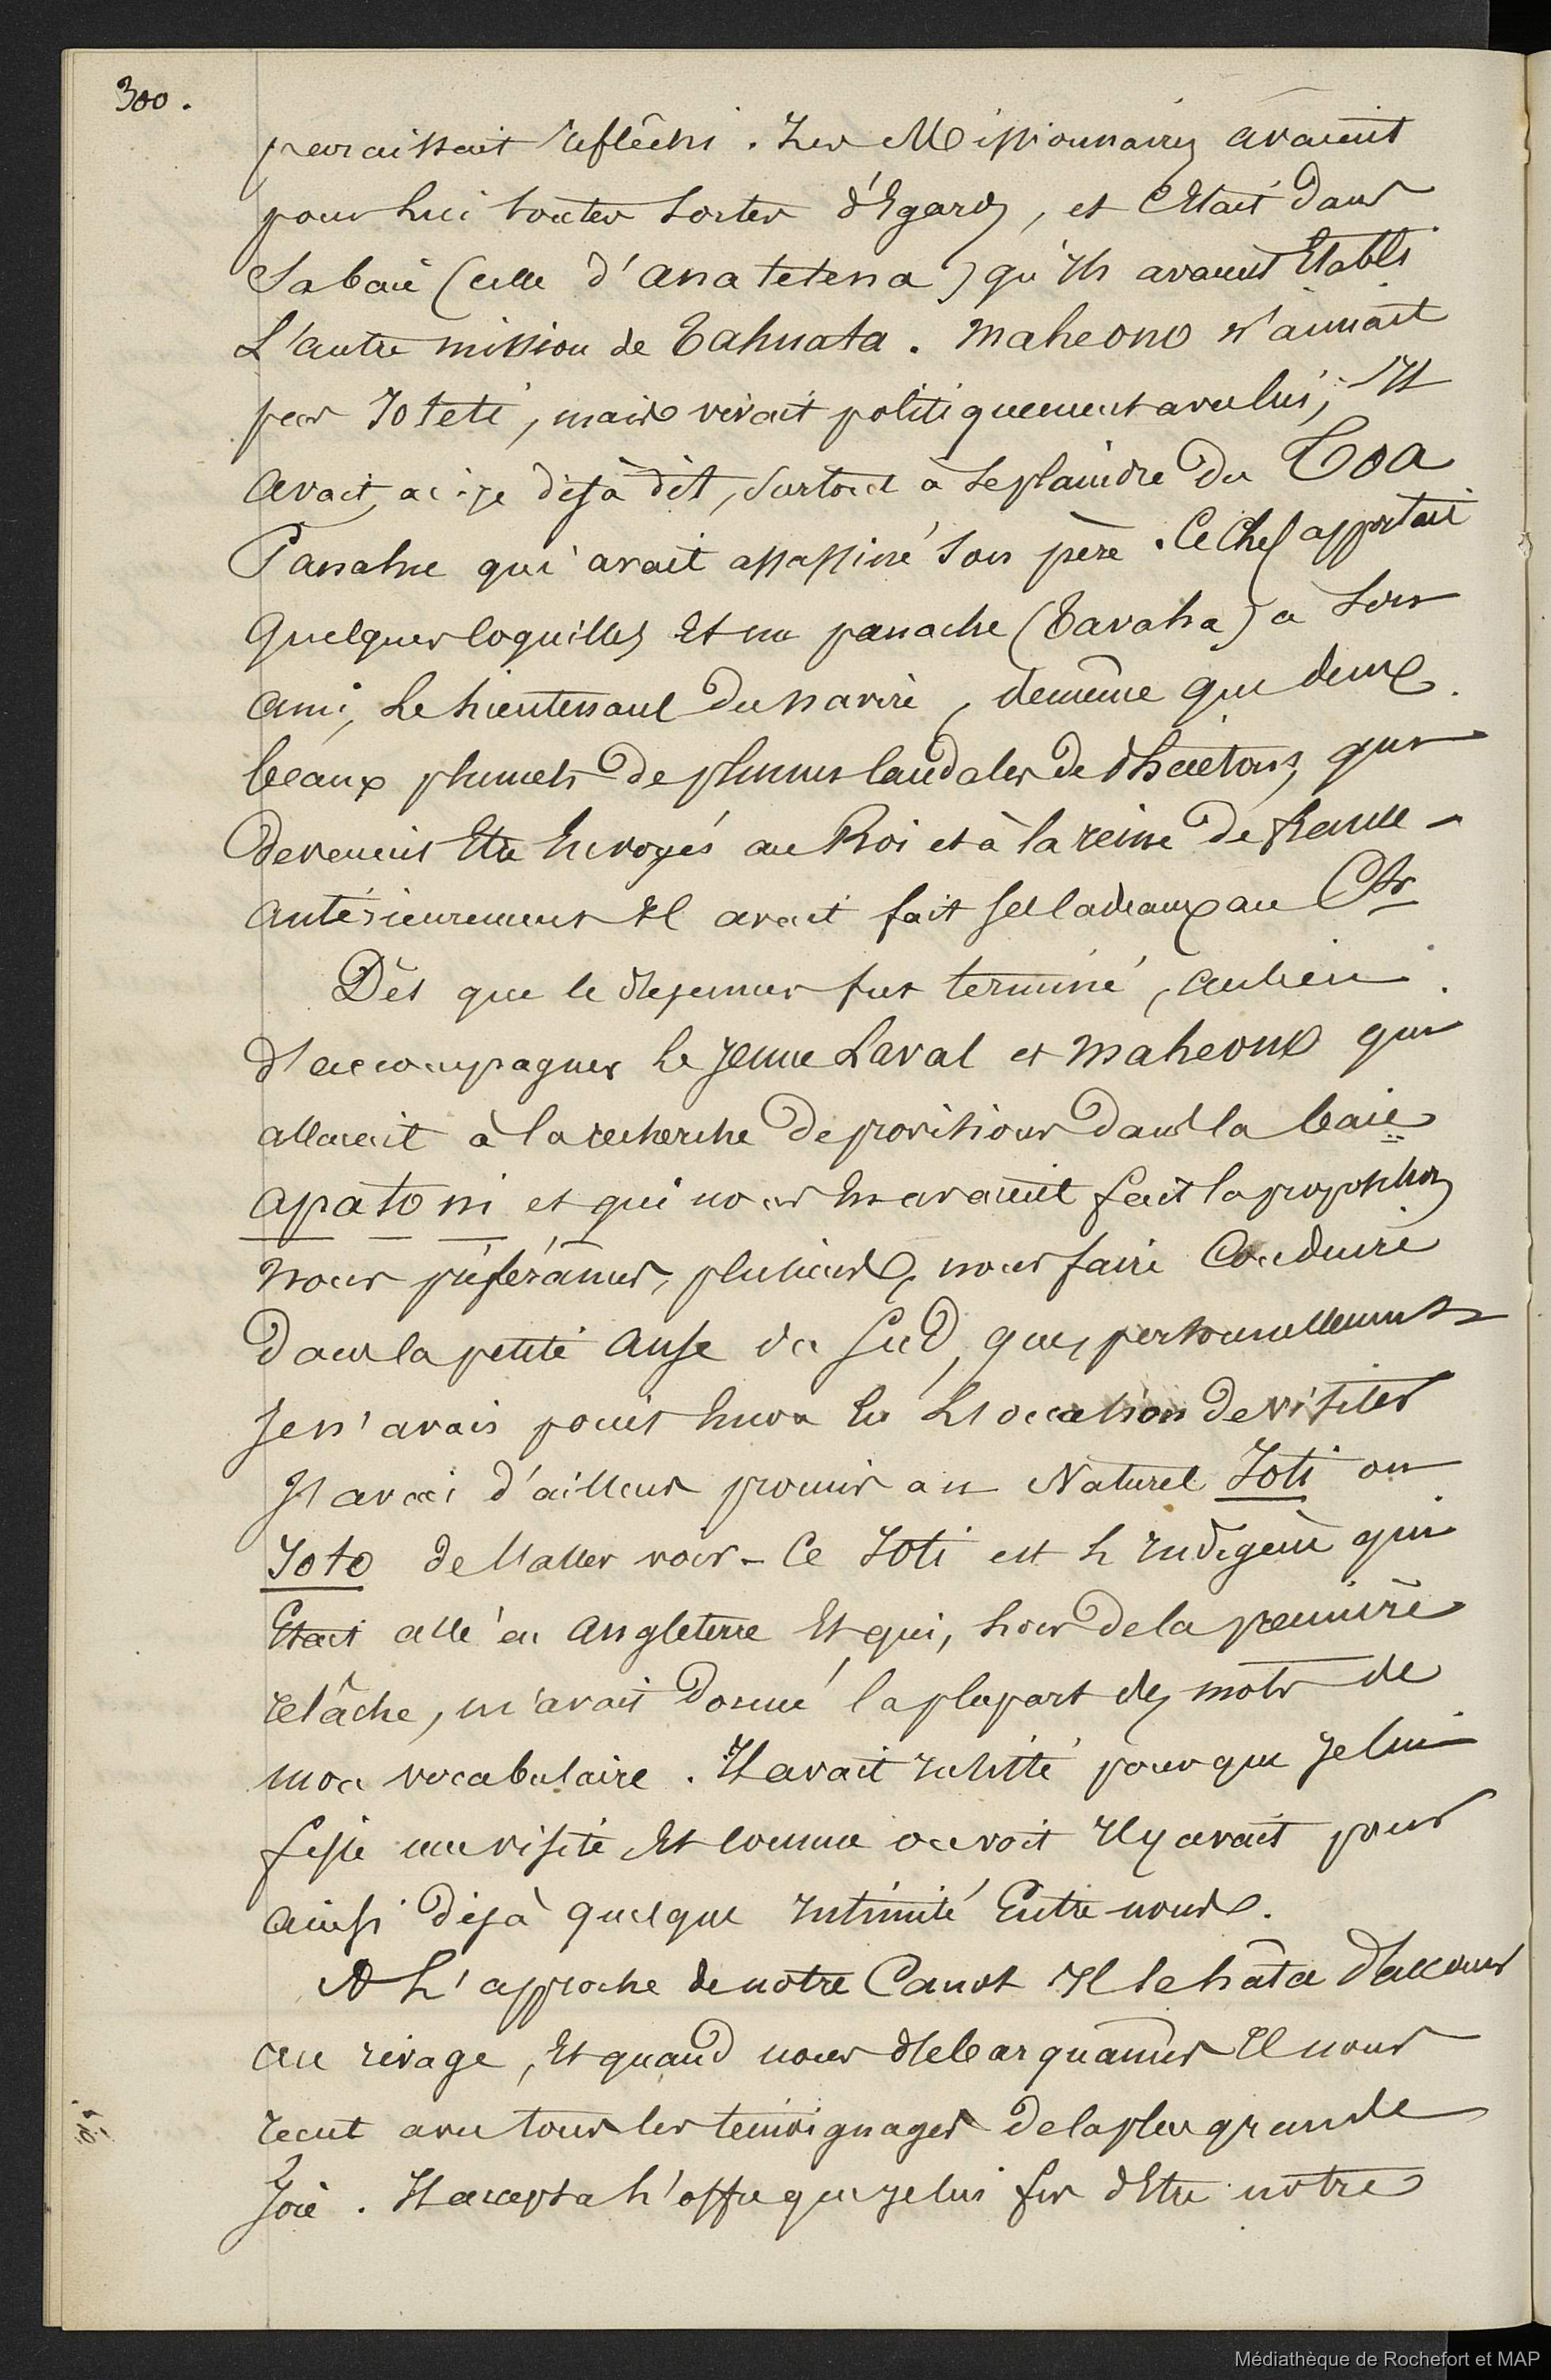 300.
paraissait réflêchi. Les Missionnaires avaient
pour lui toutes sortes d'Egards, et c'Etait dans
sa baie (celle d'anatetena) qu'ils avaient Etabli
L'autre mission de Tahuata. Maheono n'aimait
pas Ioteté, mais vivait politiquement avec lui; Il
avait, ai-je déjà dit, surtout à se plaindre du Toa
Panahu qui avait assassiné son père. Ce Chef apportait
quelques coquilles Et un panache (Tavaha) à son
ami, Le Lieutenant du navire, de même que deux
beaux plumets de plumes caudales de Phaétons, qui
devaient Etre Envoyés au Roi et à la reine de france -
antérieurement Il avait fait ses cadeaux au Ct
Dès que le déjeuner fut terminé, au lieu
d'accompagner le jeune Laval et Maheono qui
allaient à la recherche de provisions dans la baie
apatoni et qui nous En avaient fait la proposition
nous préférâmes, plusieurs, nous faire Conduire
dans la petite anse du sud, que, personnellement
je n'avais point Encore Eu L'occasion de visiter
J'avais d'ailleurs promis au Naturel Ioti ou
Ioto de L'aller voir - Ce Ioti est L'Indigène qui
Etait allé en angleterre Et qui, Lors de la première
relâche, m'avait donné la plupart des mots de
mon vocabulaire. Il avait Insisté pour que je lui
fisse une visite Et comme on voit Il y avait pour
ainsi déjà quelque Intimité Entre nous.
A L'approche de notre Canot Il se hâta d'accourir
au rivage, Et quand nous débarquâmes Il nous
recut avec tous les témoignages de la plus grande
Joie. Il accepta L'offre que je lui fis d'Etre notre
Médiathèque de Rochefort et MAP